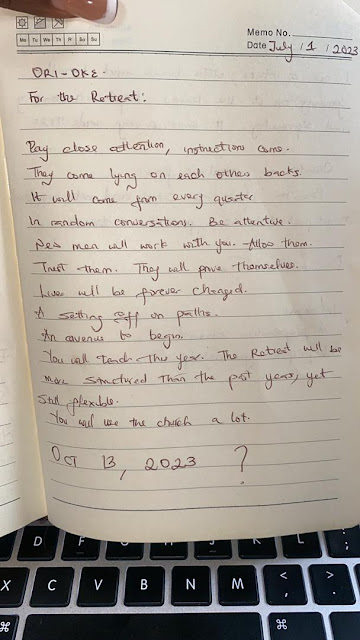 Memo No.
Mo Tu We Th Fr Sa Su
Date July / 1 / 2023
ORI-OKE.
For the Retreat:
Pay close attention, instructions come.
They come lying on each others backs.
It will come from every quarter
In random conversations. Be attentive.
men will work with you. Allow them.
Trust them. They will prove themselves.
Lives will be forever changed.
A setting off on paths.
An avenue to begin.
You will teach this year. The Retreat will be
more structured than the past years, yet
still flexible.
You will use the church a lot.
Oct 13, 2023 ?
D F J K L
X C V B N M < , > .
⌘ ⌘